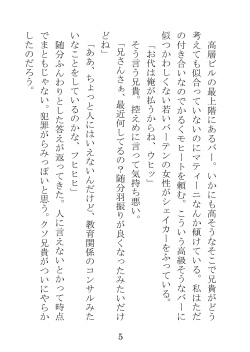 高層ビルの最上階にあるバー。いかにも高そうなそこで兄貴がどう
考えても似合っていないのにマティーニなんか傾けている。私はただ
の付き合いなのでかるくモヒートを頼む。こういう高級そうなバーに
似つかわしくない若いバーテンの女性がシェイカーをふっている。
「お代は俺が払うからね、ウヒッ」
そう言う兄貴。控えめに言って気持ち悪い。
「兄さんさぁ、最近何してるの？随分羽振りが良くなったみたいだけ
どね」
「ああ、ちょっと人にはいえないんだけど、教育関係のコンサルみた
いなことをしているのかな、フヒヒヒ」
随分ふんわりとした答えが返ってきた。人に言えないとかって時点
でまともじゃない。犯罪がらみっぽいと思う。クソ兄貴がついにやらか
したのだろう。
5